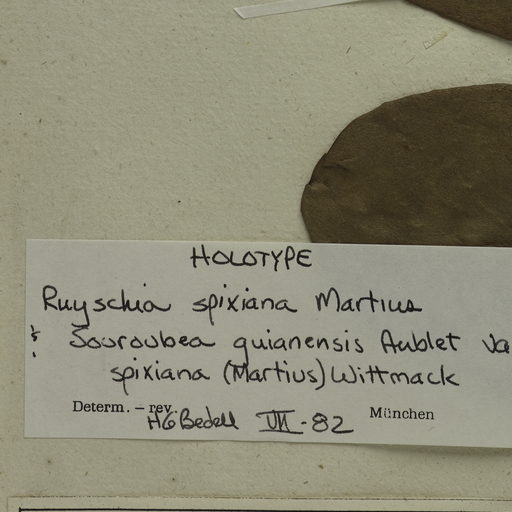 HOLOTYPE
Ruyschia spixiana Martius
Souroubea guianensis Aublet va
spixiana (Martius) Wittmack
Determ. – rev. München
HG Bedell VII-82